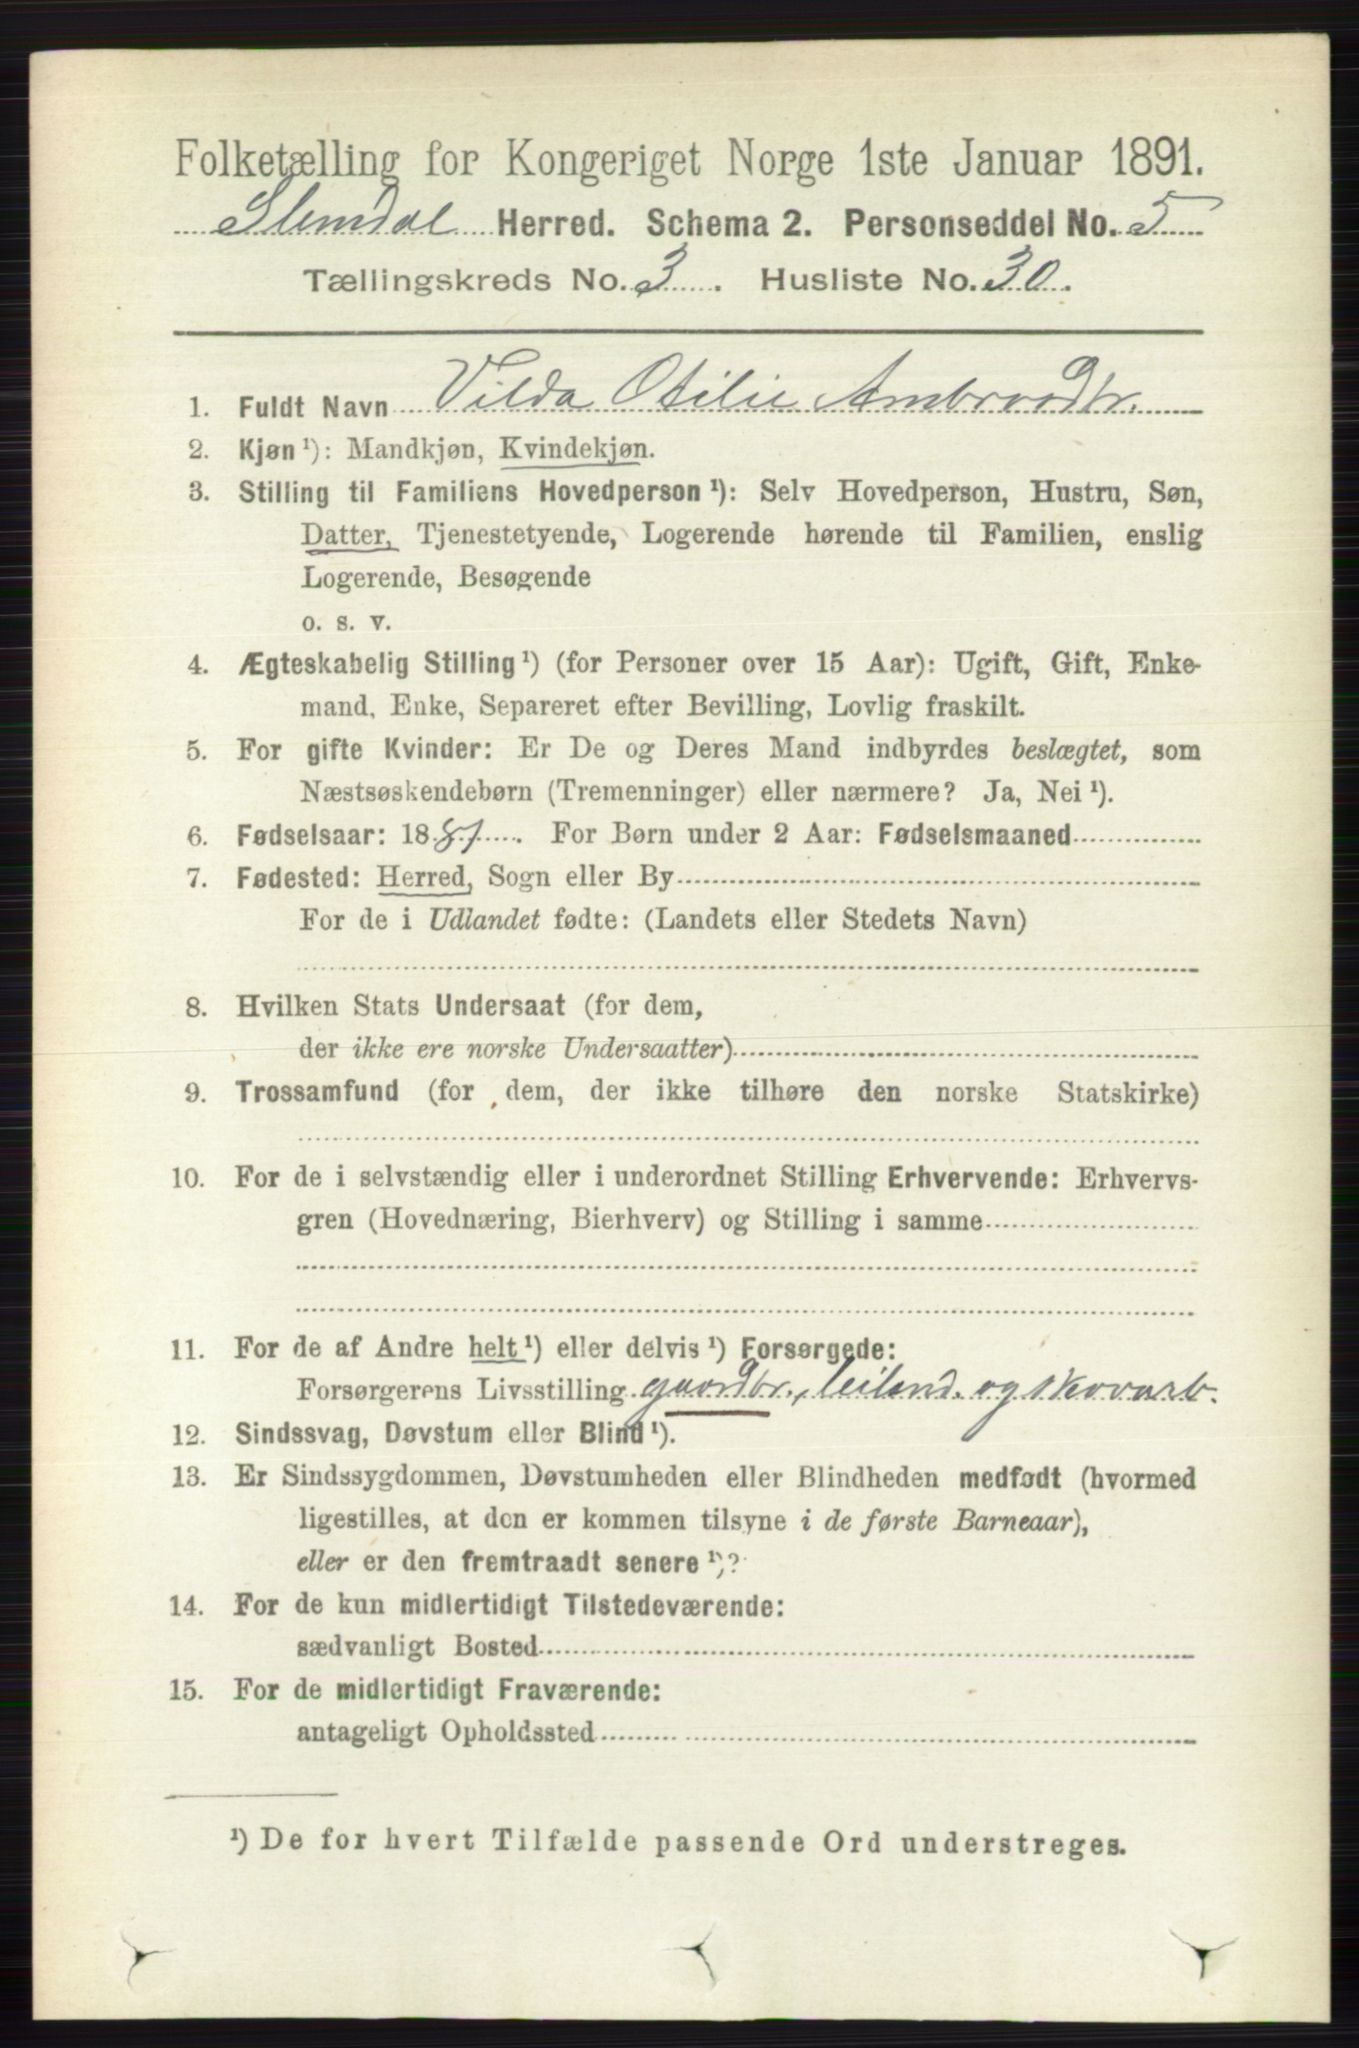 Folketælling for Kongeriget Norge 1ste Januar 1891.
Slemdal Herred. Schema 2. Personseddel No. 5
Tællingskreds No. 3. Husliste No. 30.
1. Fuldt Navn Vilda Otilie Ambrosdtr.
2. Kjøn ¹): Mandkjøn, Kvindekjøn.
3. Stilling til Familiens Hovedperson ¹): Selv Hovedperson, Hustru, Søn,
Datter, Tjenestetyende, Logerende hørende til Familien, enslig
Logerende, Besøgende
o. s. v.
4. Ægteskabelig Stilling ¹) (for Personer over 15 Aar): Ugift, Gift, Enke-
mand, Enke, Separeret efter Bevilling, Lovlig fraskilt.
5. For gifte Kvinder: Er De og Deres Mand indbyrdes beslægtet, som
Næstsøskendebørn (Tremenninger) eller nærmere? Ja, Nei ¹).
6. Fødselsaar: 1881. For Børn under 2 Aar: Fødselsmaaned
7. Fødested: Herred, Sogn eller By
For de i Udlandet fødte: (Landets eller Stedets Navn)
8. Hvilken Stats Undersaat (for dem,
der ikke ere norske Undersaatter)
9. Trossamfund (for dem, der ikke tilhøre den norske Statskirke)
10. For de i selvstændig eller i underordnet Stilling Erhvervende: Erhvervs-
gren (Hovednæring, Bierhverv) og Stilling i samme
11. For de af Andre helt ¹) eller delvis ¹) Forsørgede:
Forsørgerens Livsstilling gaardbr., leilend. og skovarb.
12. Sindssvag, Døvstum eller Blind ¹).
13. Er Sindssygdommen, Døvstumheden eller Blindheden medfødt (hvormed
ligestilles, at den er kommen tilsyne i de første Barneaar),
eller er den fremtraadt senere ¹)?
14. For de kun midlertidigt Tilstedeværende:
sædvanligt Bosted
15. For de midlertidigt Fraværende:
antageligt Opholdssted
¹) De for hvert Tilfælde passende Ord understreges.